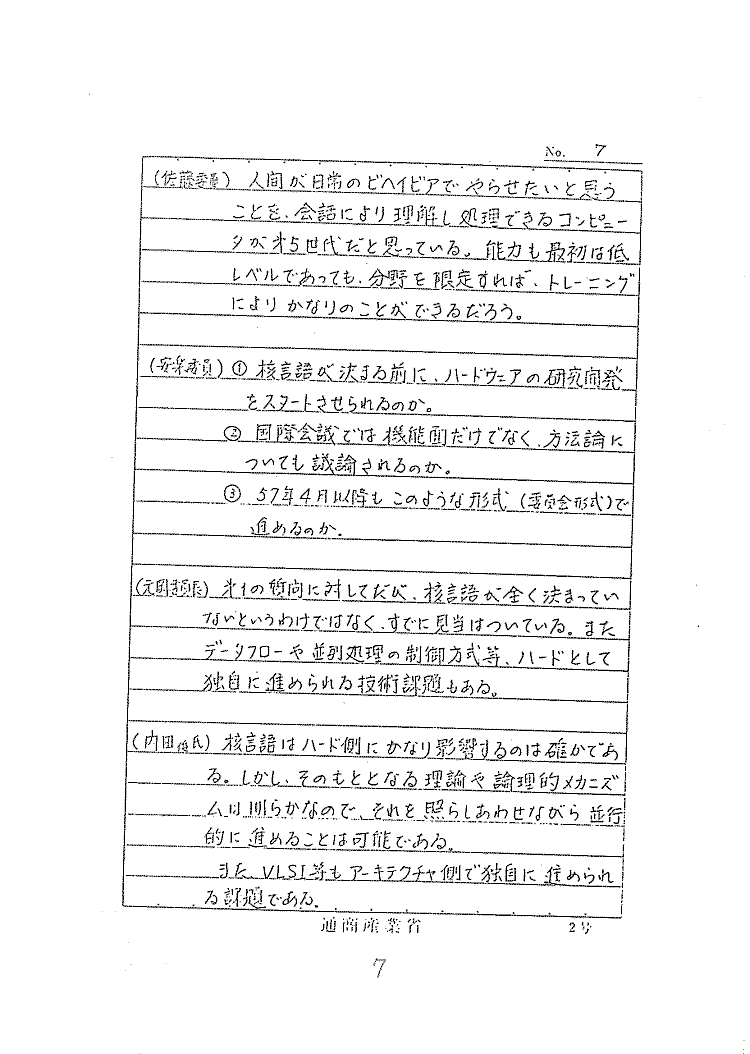 No. 7
(佐藤委員) 人間が日常のビヘイビアでやらせたいと思う
ことを、会話により理解し処理できるコンピュー
タが才5世代だと思っている。能力も最初は低
レベルであっても、分野を限定すれば、トレーニング
によりかなりのことができるだろう。
(安楽委員) ① 核言語が決まる前に、ハードウェアの研究開発
をスタートさせられるのか。
② 国際会議では機能面だけでなく、方法論に
ついても議論されるのか。
③ 57年4月以降もこのような形式(委員会形式)で
進めるのか.
(元岡委員長) 才1の質問に対してだが、核言語が全く決まってい
ないというわけではなく、すでに見当はついている。また
データフローや並列処理の制御方式等、ハードとして
独自に進められる技術課題もある。
(内田 氏) 核言語はハード側にかなり影響するのは確かであ
る。しかし、そのもととなる理論や論理的メカニズ
ムは明らかなので、それを照らしあわせながら並行
的に進めることは可能である。
また VLSI等もアーキテクチャ側で独自に進められ
る課題である.
通商産業省
2号
7